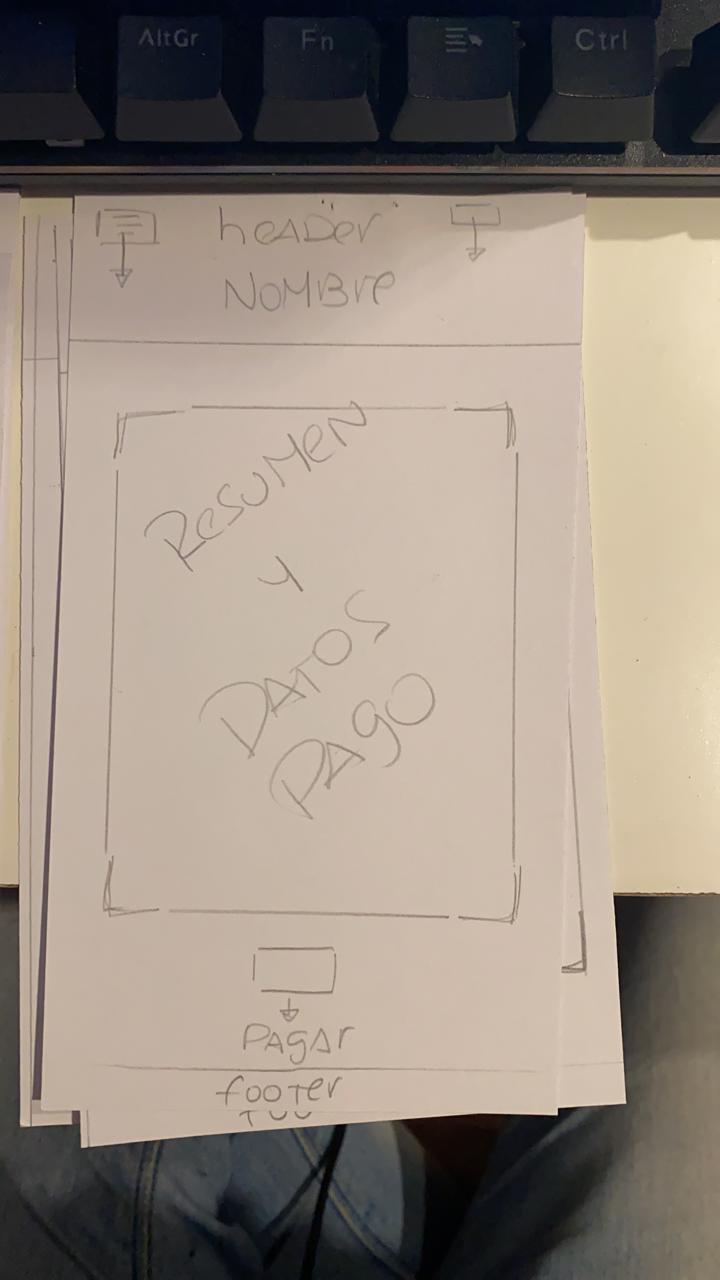 AltGr
Fn
Ctrl
header
NOMBre
ReSUMeN
y
DATOS
PAgO
PAgAr
fooTer